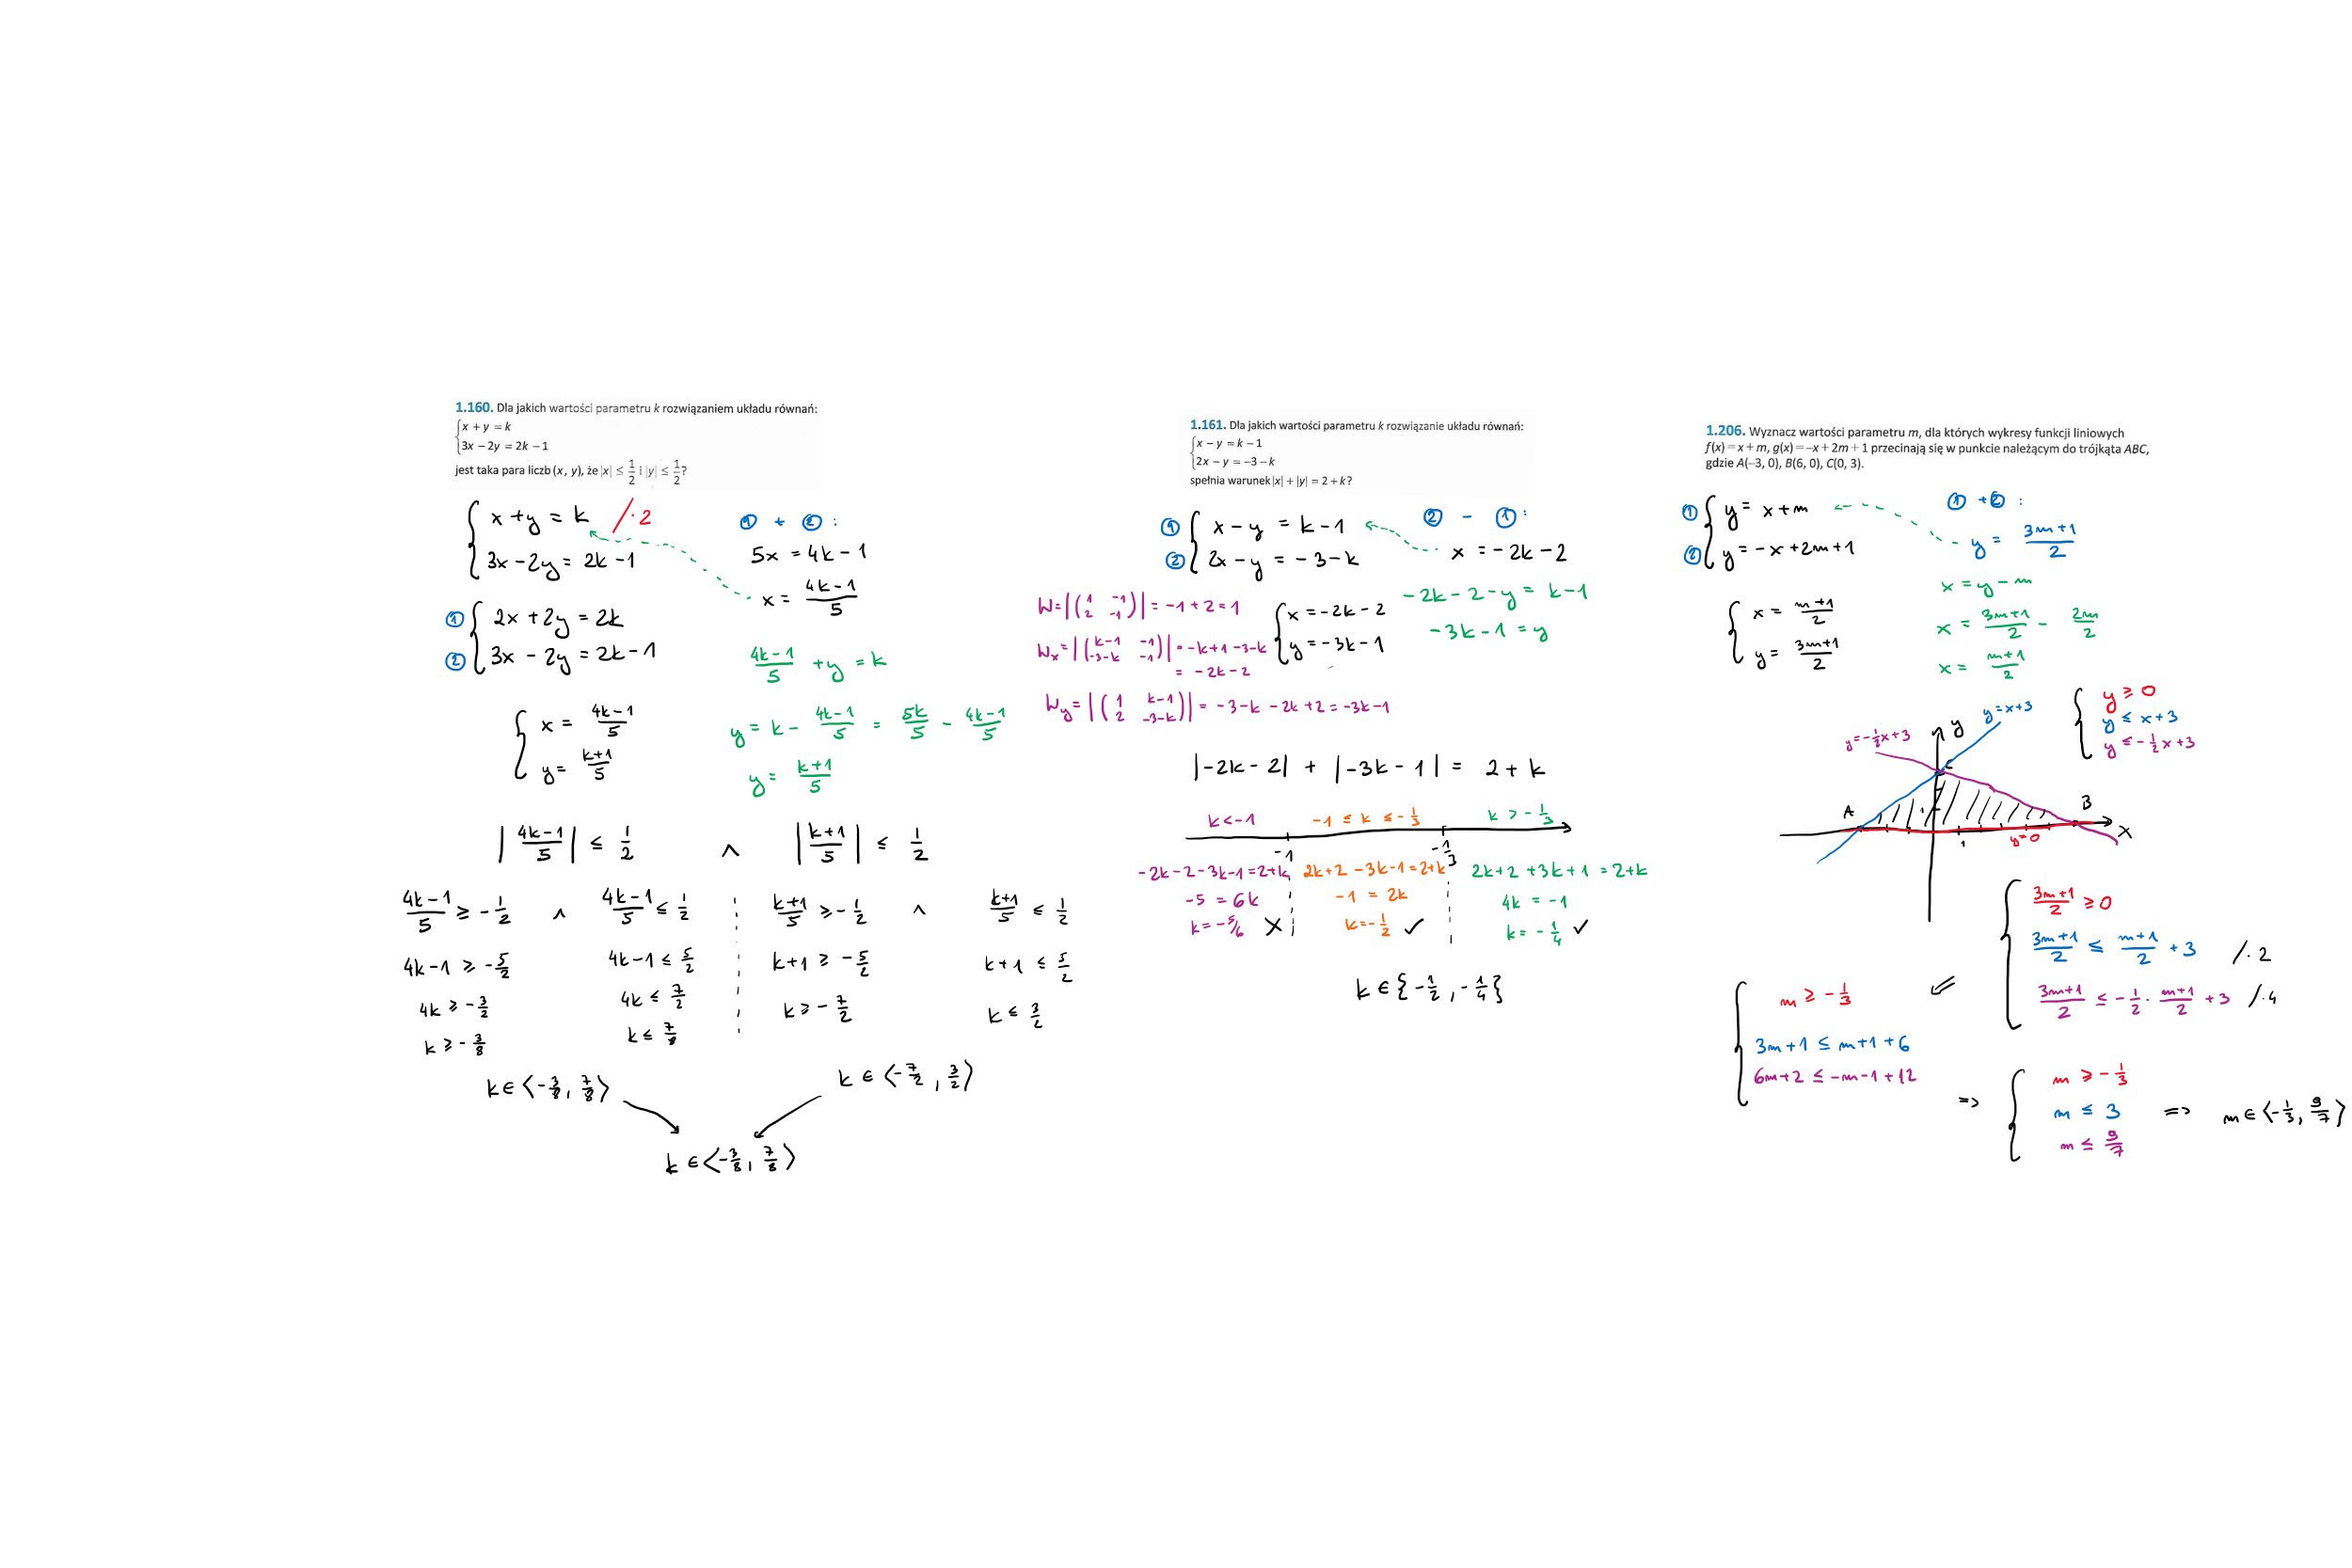 1.160. Dla jakich wartości parametru k rozwiązaniem układu równań:
{ x + y = k
3x − 2y = 2k − 1
jest taka para liczb (x, y), że |x| ≤ 1/2 i |y| ≤ 1/2?
{ x + y = k /·2
3x − 2y = 2k − 1
① + ② :
5x = 4k − 1
x = (4k − 1)/5
① { 2x + 2y = 2k
② 3x − 2y = 2k − 1
(4k − 1)/5 + y = k
y = k − (4k − 1)/5 = 5k/5 − (4k − 1)/5
y = (k + 1)/5
{ x = (4k − 1)/5
y = (k + 1)/5
|(4k − 1)/5| ≤ 1/2 ∧ |(k + 1)/5| ≤ 1/2
(4k − 1)/5 ≥ −1/2 ∧ (4k − 1)/5 ≤ 1/2 (k + 1)/5 ≥ −1/2 ∧ (k + 1)/5 ≤ 1/2
4k − 1 ≥ −5/2 4k − 1 ≤ 5/2 k + 1 ≥ −5/2 k + 1 ≤ 5/2
4k ≥ −3/2 4k ≤ 7/2 k ≥ −7/2 k ≤ 3/2
k ≥ −3/8 k ≤ 7/8
k ∈ ⟨−3/8, 7/8⟩ k ∈ ⟨−7/2, 3/2⟩
k ∈ ⟨−3/8, 7/8⟩
1.161. Dla jakich wartości parametru k rozwiązanie układu równań:
{ x − y = k − 1
2x − y = −3 − k
spełnia warunek |x| + |y| = 2 + k?
① { x − y = k − 1
② 2x − y = −3 − k
② − ① :
x = −2k − 2
−2k − 2 − y = k − 1
−3k − 1 = y
W = |(1 −1 2 −1)| = −1 + 2 = 1
Wx = |(k−1 −1 −3−k −1)| = −k + 1 − 3 − k
= −2k − 2
Wy = |(1 k−1 2 −3−k)| = −3 − k − 2k + 2 = −3k − 1
{ x = −2k − 2
y = −3k − 1
|−2k − 2| + |−3k − 1| = 2 + k
k < −1 −1 ≤ k ≤ −1/3 k > −1/3
−1 −1/3
−2k − 2 − 3k − 1 = 2 + k 2k + 2 − 3k − 1 = 2 + k 2k + 2 + 3k + 1 = 2 + k
−5 = 6k −1 = 2k 4k = −1
k = −5/6 ✗ k = −1/2 ✓ k = −1/4 ✓
k ∈ {−1/2, −1/4}
1.206. Wyznacz wartości parametru m, dla których wykresy funkcji liniowych
f(x) = x + m, g(x) = −x + 2m + 1 przecinają się w punkcie należącym do trójkąta ABC,
gdzie A(−3, 0), B(6, 0), C(0, 3).
① { y = x + m
② y = −x + 2m + 1
① + ② :
y = (3m + 1)/2
x = y − m
x = (3m + 1)/2 − 2m/2
x = (m + 1)/2
{ x = (m + 1)/2
y = (3m + 1)/2
{ y ≥ 0
y ≤ x + 3
y ≤ −1/2 x + 3
y = −1/2 x + 3 y y = x + 3
C
A B
1
1 y = 0 x
{ (3m + 1)/2 ≥ 0
(3m + 1)/2 ≤ (m + 1)/2 + 3 /·2
(3m + 1)/2 ≤ −1/2 · (m + 1)/2 + 3 /·4
⇐
{ m ≥ −1/3
3m + 1 ≤ m + 1 + 6
6m + 2 ≤ −m − 1 + 12
=> { m ≥ −1/3
m ≤ 3
m ≤ 9/7
=> m ∈ ⟨−1/3, 9/7⟩